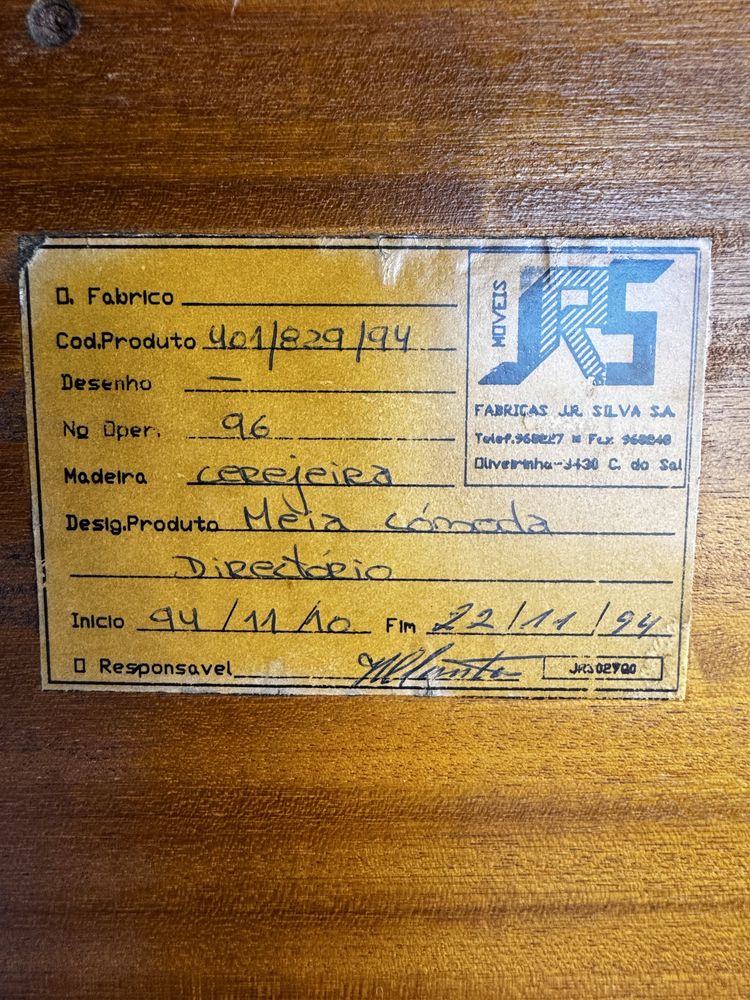 O. Fabrico
Cod.Produto 401/829/94
Desenho —
Nº Oper. 96
Madeira cerejeira
Desig.Produto Meia cómoda
Directório
Inicio 94/11/10 Fim 22/11/94
O Responsavel
MOVEIS
JRS
FABRICAS J.R. SILVA S.A.
Telef.960227 Fax 960240
Oliveirinha-3430 C. do Sal